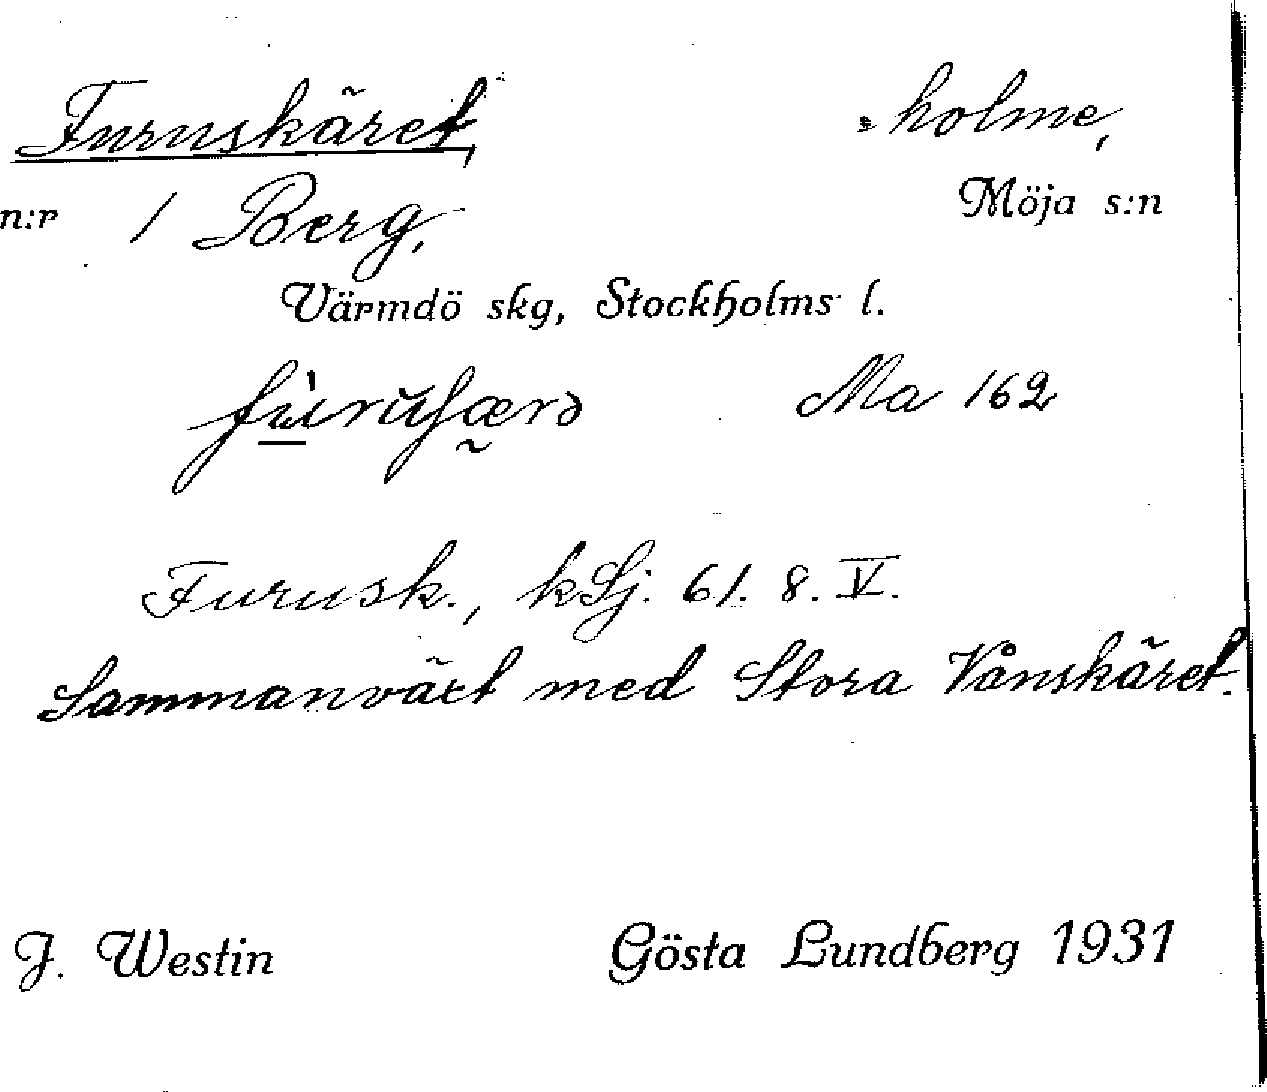 Furuskäret, holme,
n:r 1 Berg, Möja s:n
Värmdö skg, Stockholms l.
Ma 162
Furusk., kSj. 61. 8. V.
Sammanväxt med Stora Vånskäret.
J. Westin Gösta Lundberg 1931